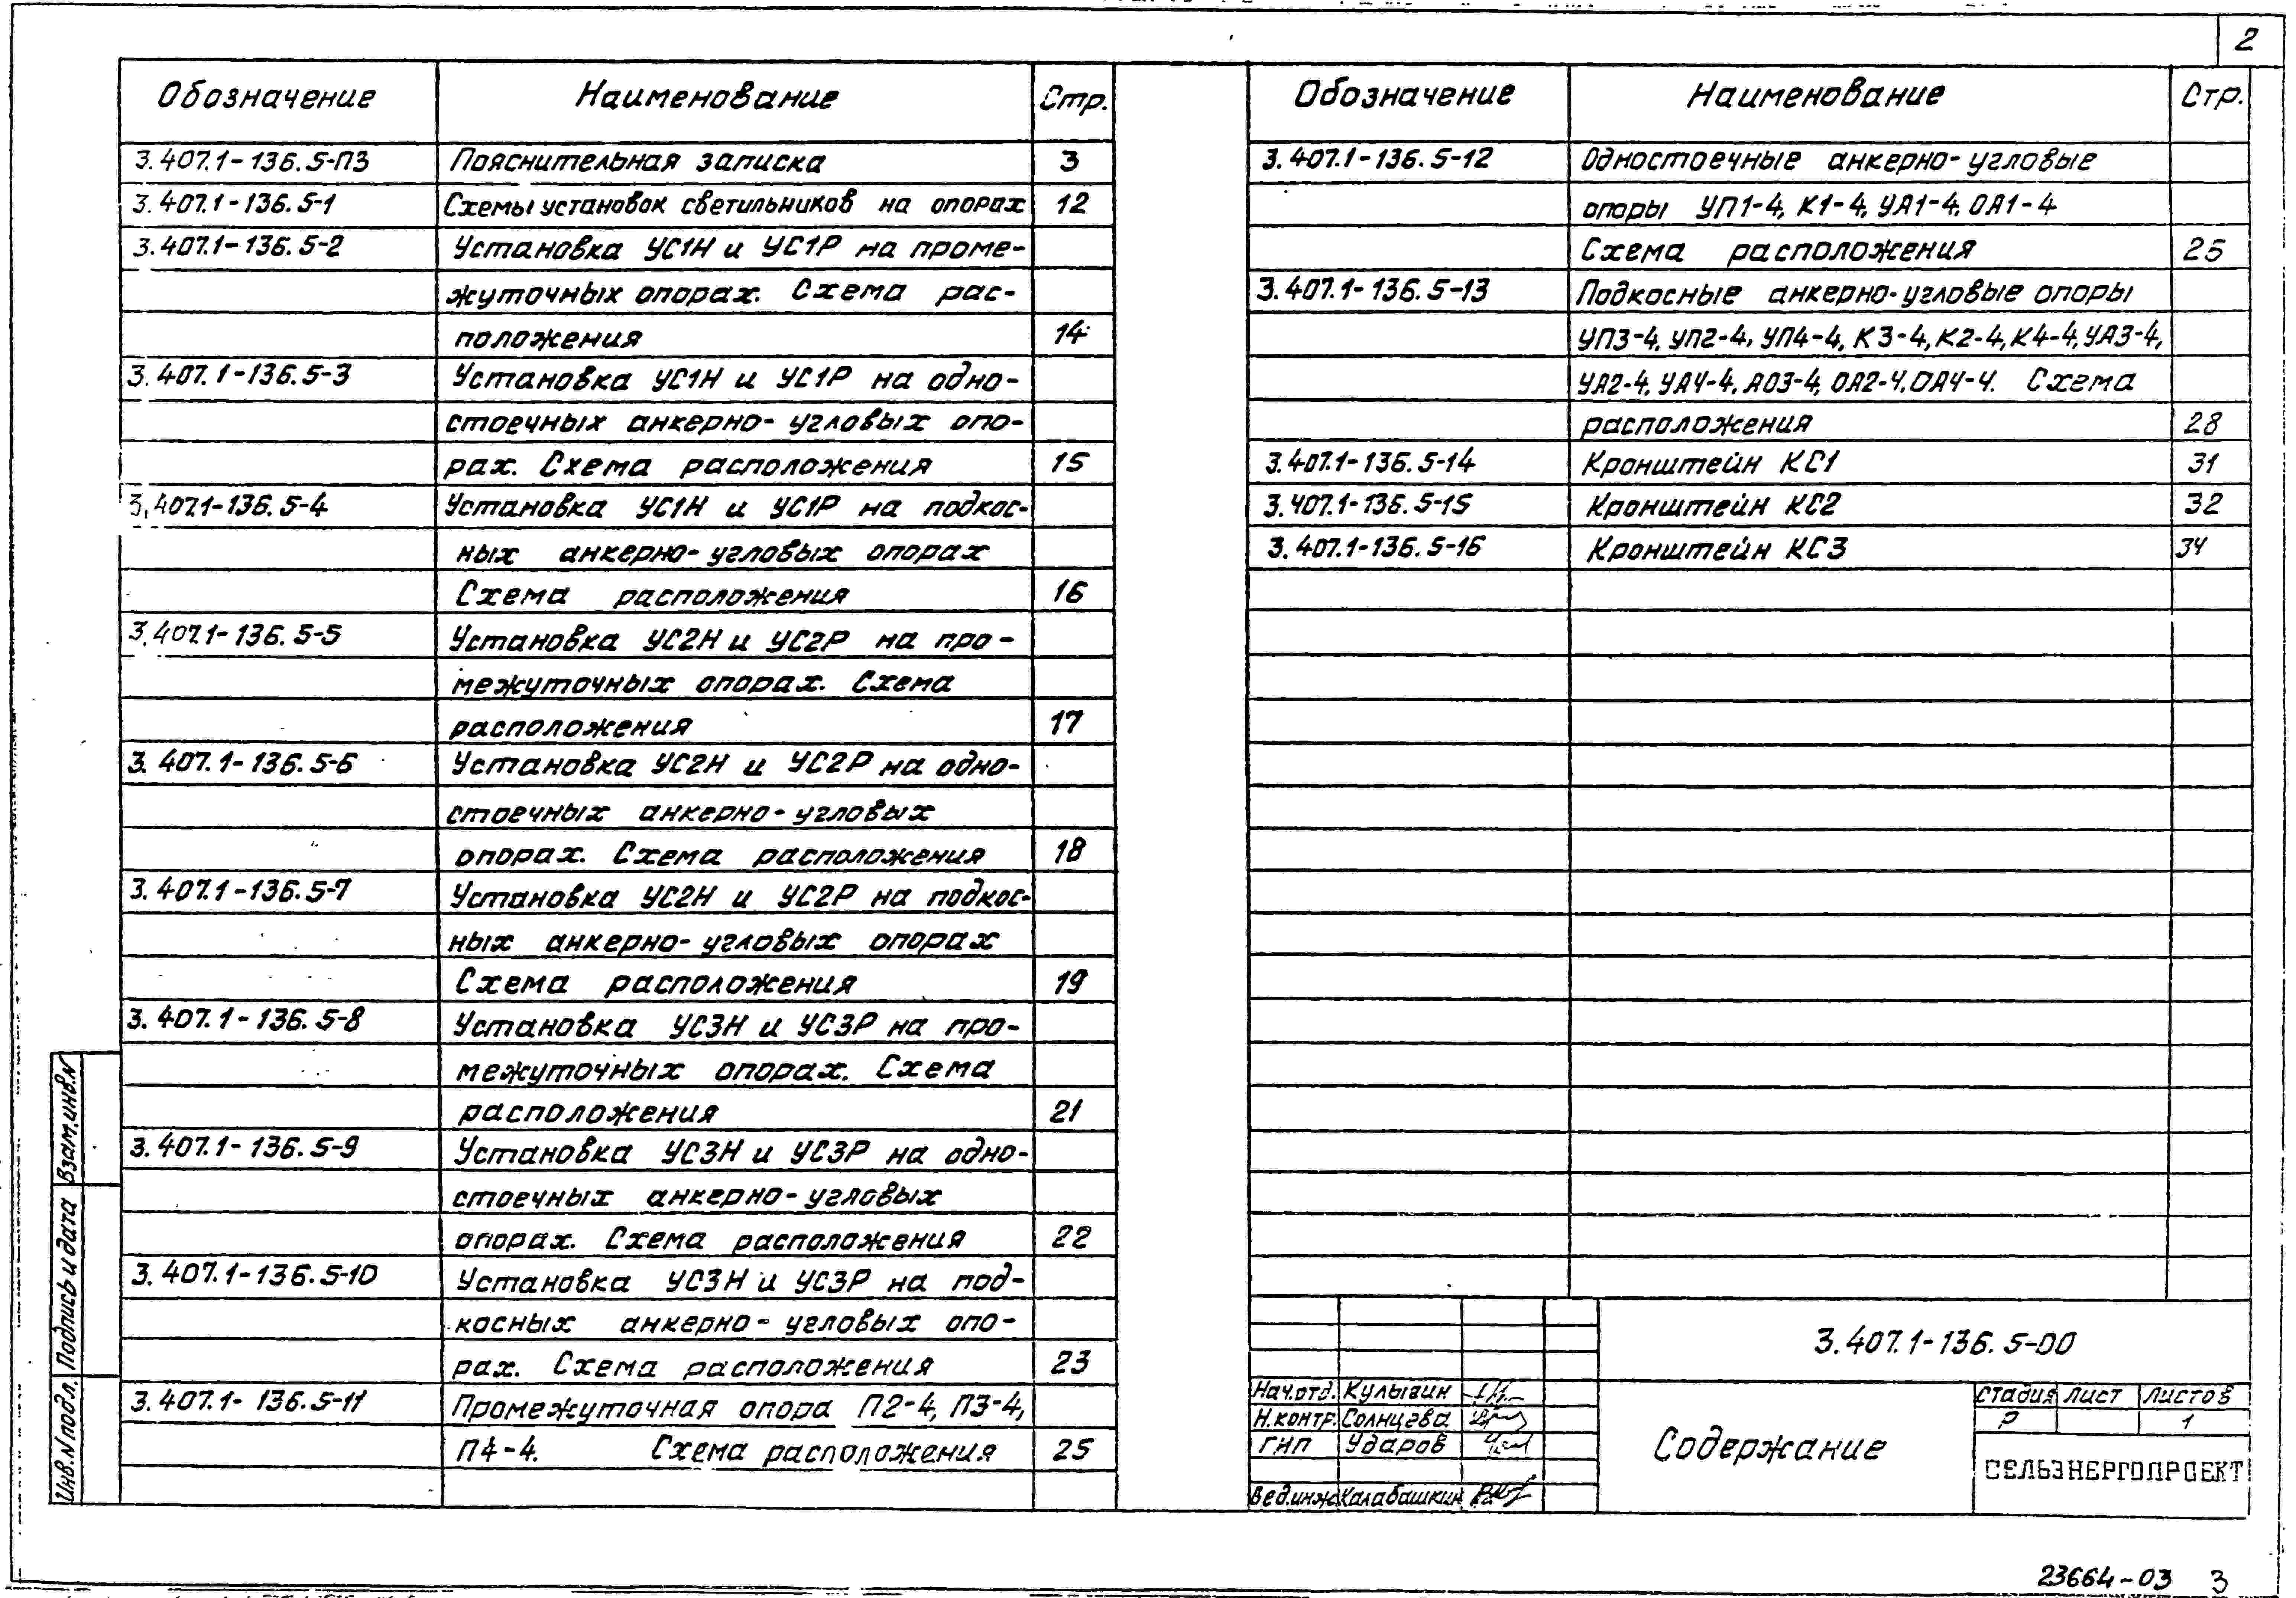 2
Обозначение Наименование Стр.
3.407.1-136.5-ПЗ Пояснительная записка 3
3.407.1-136.5-1 Схемы установок светильников на опорах 12
3.407.1-136.5-2 Установка УС1Н и УС1Р на проме-
жуточных опорах. Схема рас-
положения 14
3.407.1-136.5-3 Установка УС1Н и УС1Р на одно-
стоечных анкерно-угловых опо-
рах. Схема расположения 15
3.407.1-136.5-4 Установка УС1Н и УС1Р на подкос-
ных анкерно-угловых опорах
Схема расположения 16
3.407.1-136.5-5 Установка УС2Н и УС2Р на про-
межуточных опорах. Схема
расположения 17
3.407.1-136.5-6 Установка УС2Н и УС2Р на одно-
стоечных анкерно-угловых
опорах. Схема расположения 18
3.407.1-136.5-7 Установка УС2Н и УС2Р на подкос-
ных анкерно-угловых опорах
Схема расположения 19
3.407.1-136.5-8 Установка УС3Н и УС3Р на про-
межуточных опорах. Схема
расположения 21
3.407.1-136.5-9 Установка УС3Н и УС3Р на одно-
стоечных анкерно-угловых
опорах. Схема расположения 22
3.407.1-136.5-10 Установка УС3Н и УС3Р на под-
косных анкерно-угловых опо-
рах. Схема расположения 23
3.407.1-136.5-11 Промежуточная опора П2-4, П3-4,
П4-4. Схема расположения 25
Обозначение Наименование Стр.
3.407.1-136.5-12 Одностоечные анкерно-угловые
опоры УП1-4, К1-4, УА1-4, ОА1-4
Схема расположения 25
3.407.1-136.5-13 Подкосные анкерно-угловые опоры
УП3-4, УП2-4, УП4-4, К3-4, К2-4, К4-4, УА3-4,
УА2-4, УА4-4, АО3-4, ОА2-4, ОА4-4. Схема
расположения 28
3.407.1-136.5-14 Кронштейн КС1 31
3.407.1-136.5-15 Кронштейн КС2 32
3.407.1-136.5-16 Кронштейн КС3 34
3.407.1-136.5-00
Нач.отд. Кулыгин
Н.контр. Солнцева
ГИП Ударов
Вед.инж Калабашкин
Содержание
Стадия Лист Листов
Р 1
СЕЛЬЭНЕРГОПРОЕКТ
Взам.инв.N
Подпись и дата
Инв.N подл.
23664-03 3